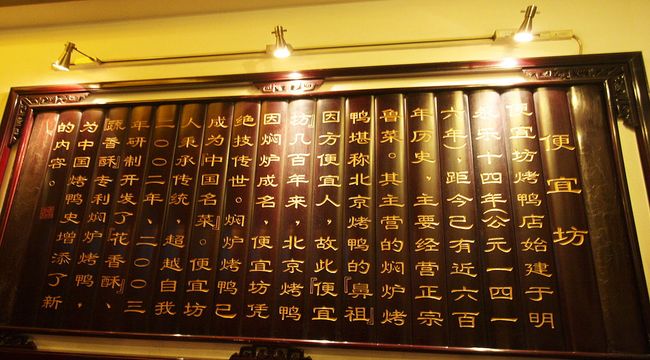 便宜坊
便宜坊烤鸭店始建于明
永乐十四年(公元一四一
六年),距今已有近六百
年历史,主要经营正宗
鲁菜。其主营的焖炉烤
鸭堪称北京烤鸭的『鼻祖』
因方便宜人,故此『便宜
坊』几百年来,北京烤鸭
因焖炉成名 便宜坊凭
绝技传世。焖炉烤鸭已
成为中国名菜。便宜坊
人秉承传统,超越自我
二〇〇二年、二〇〇三
年研制开发了『花香酥、
蔬香酥』专利焖炉烤鸭,
为中国烤鸭史增添了新
的内容。